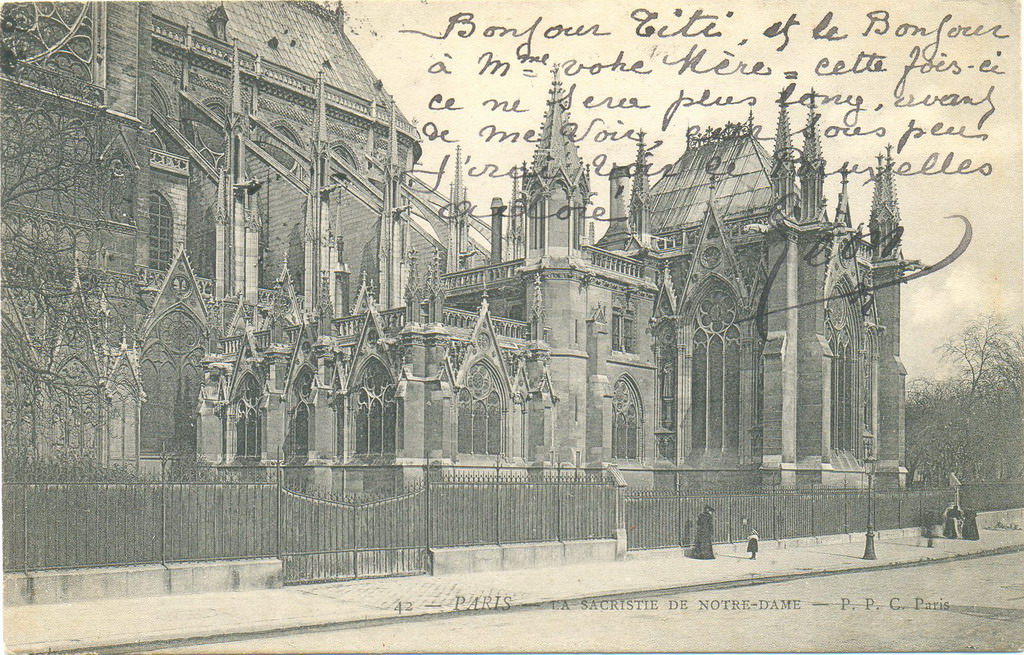 Bonjour Titi, et le Bonjour
à Mme votre Mère = cette fois-ci
ce ne sera plus long, avant
de me voir, sous peu
j'irai voir Bruxelles
encore
42 — PARIS — LA SACRISTIE DE NOTRE-DAME — P. P. C. Paris